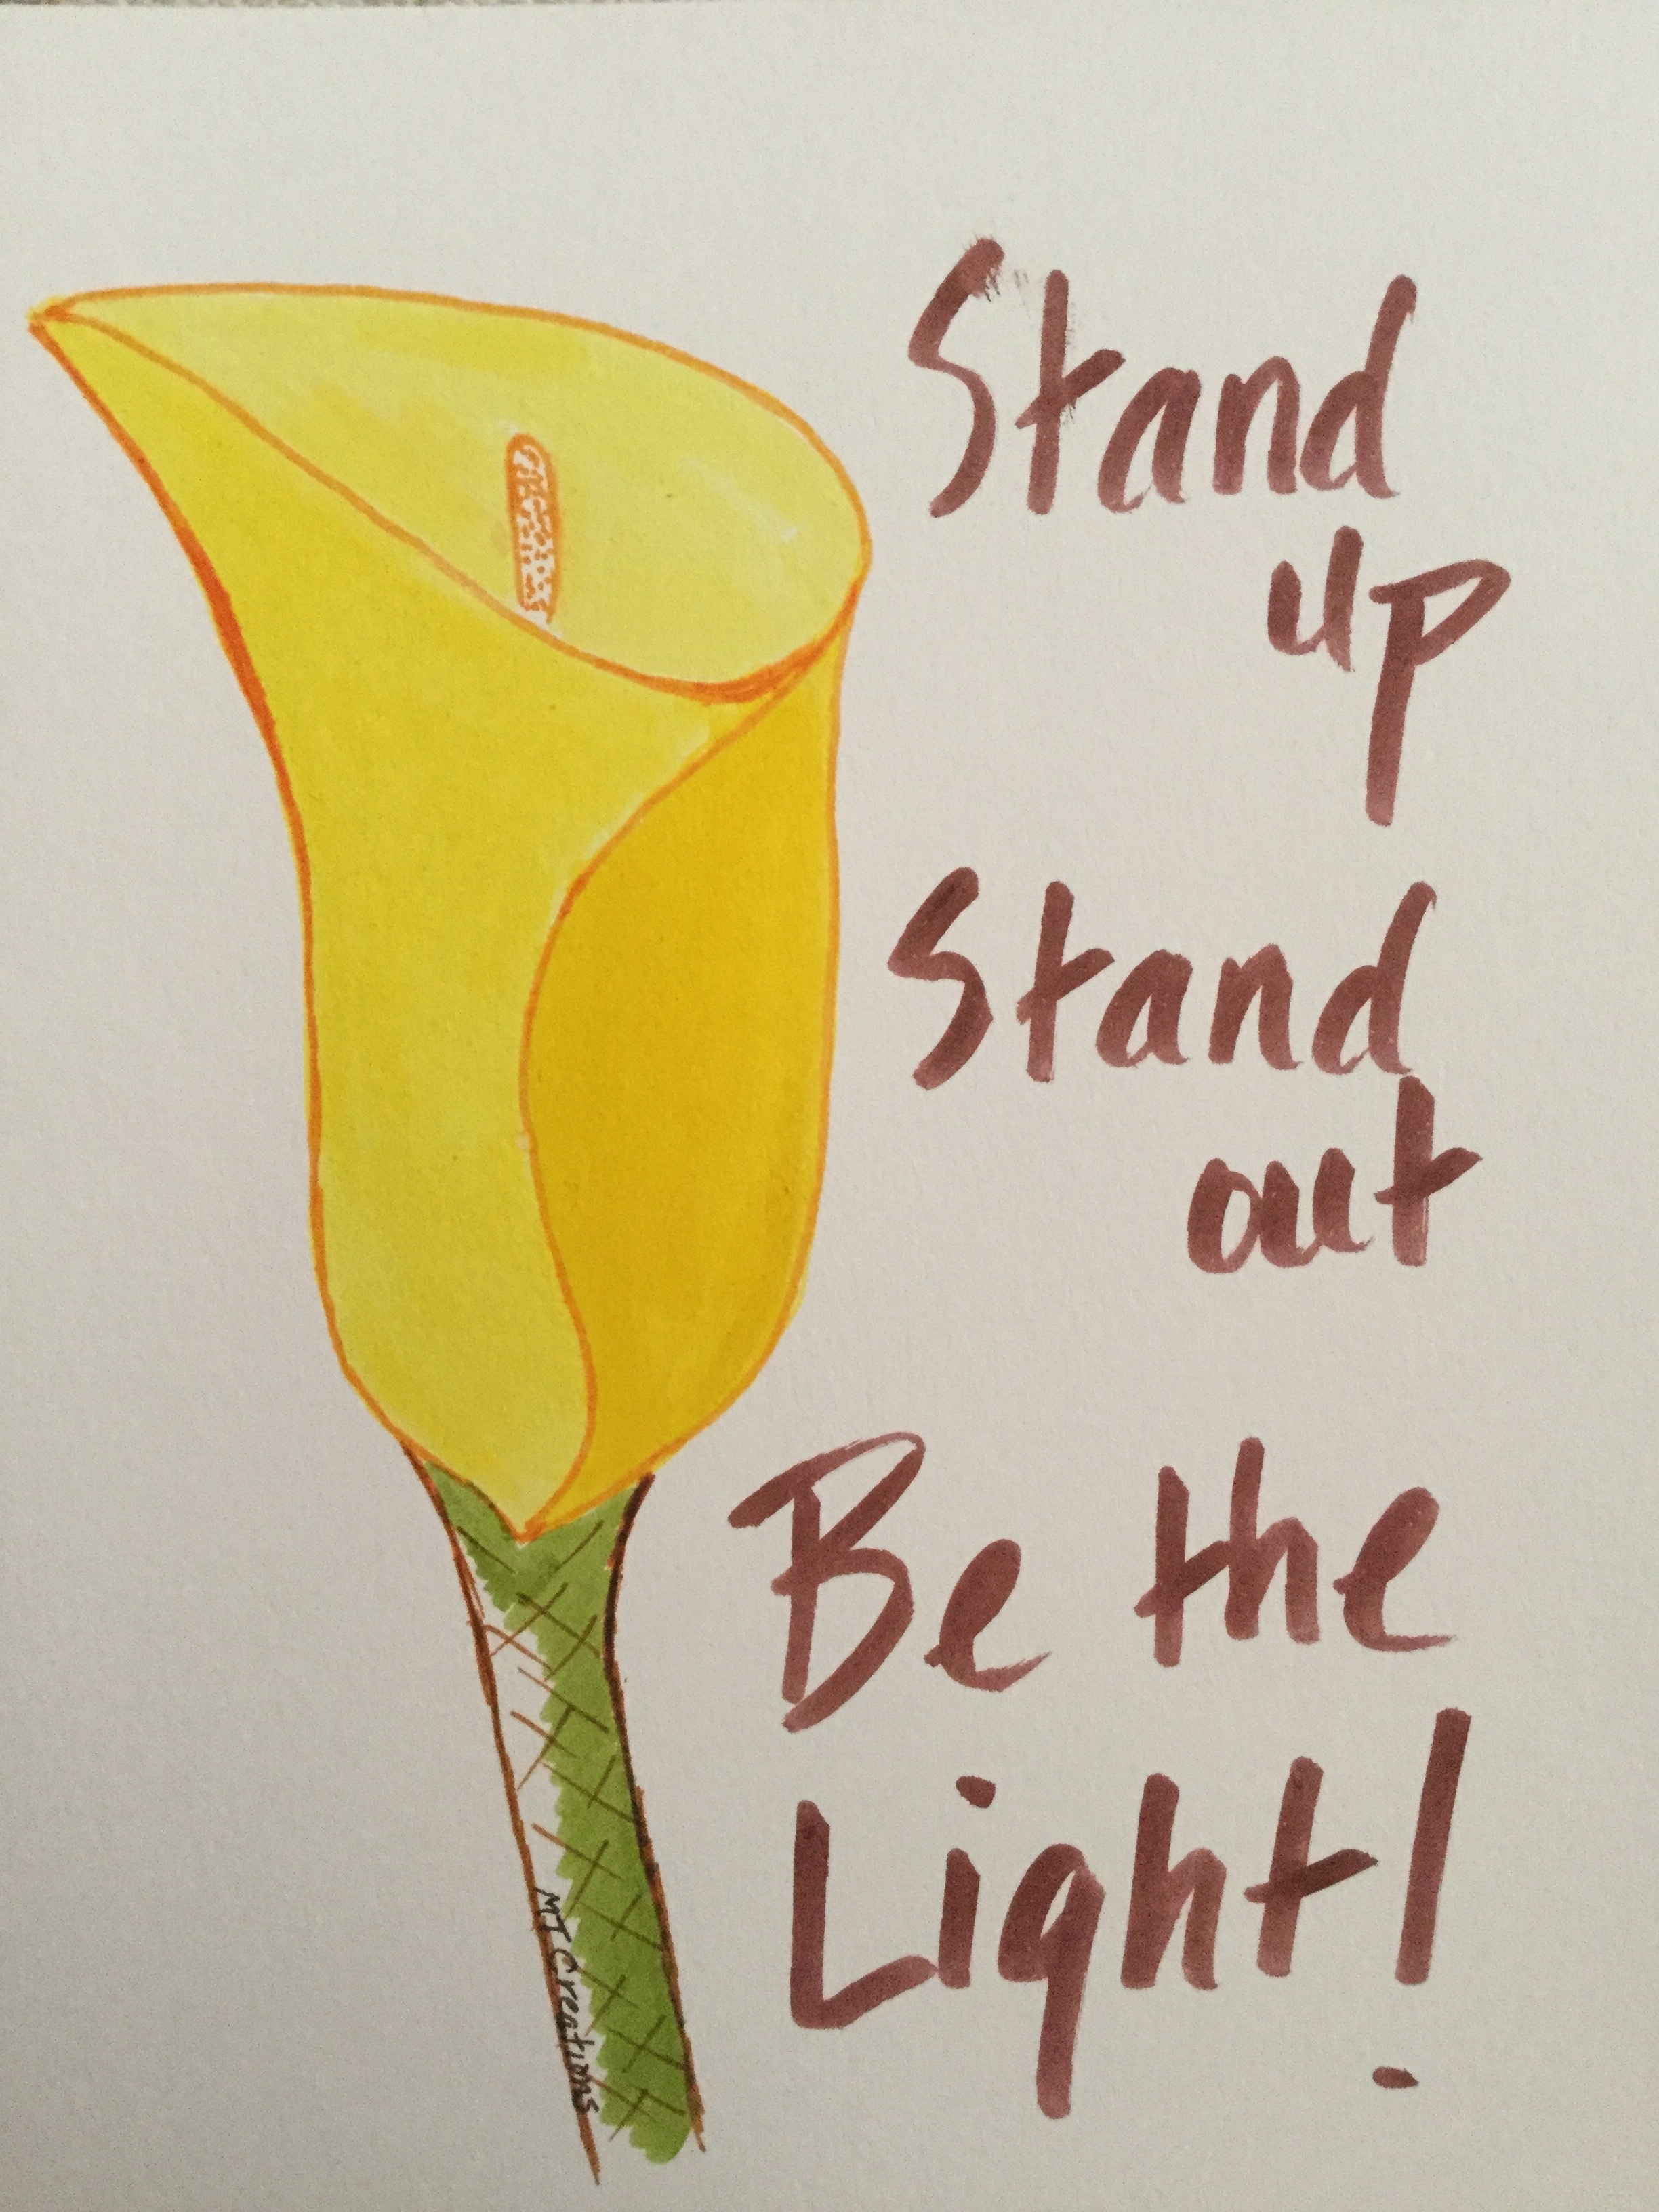 Stand
up
Stand
out
Be the
Light!
MJ Creations